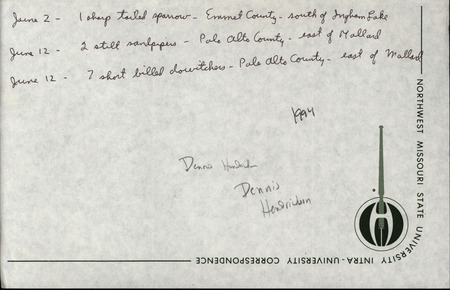 June 2 - 1 sharp tailed sparrow - Emmet County - south of Ingham Lake
June 12 - 2 stilt sandpipers - Palo Alto County - east of Mallard
June 12 - 7 short billed dowitchers - Palo Alto County - east of Mallard
1994
Dennis
Dennis
NORTHWEST MISSOURI STATE UNIVERSITY INTRA-UNIVERSITY CORRESPONDENCE